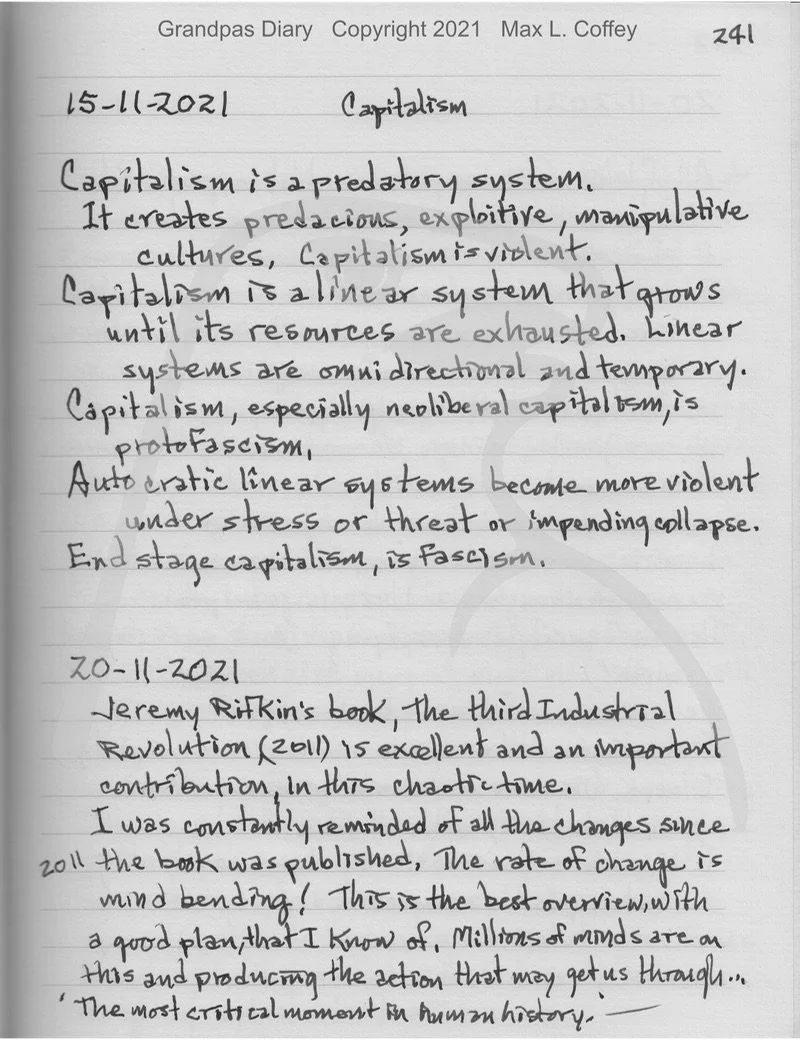 Grandpas Diary Copyright 2021 Max L. Coffey
241
15-11-2021 Capitalism
Capitalism is a predatory system.
It creates predacious, exploitive, manipulative
cultures, Capitalism is violent.
Capitalism is a linear system that grows
until its resources are exhausted. Linear
systems are omnidirectional and temporary.
Capitalism, especially neoliberal capitalism, is
protofascism,
Autocratic linear systems become more violent
under stress or threat or impending collapse.
End stage capitalism, is fascism.
20-11-2021
Jeremy Rifkin's book, The third Industrial
Revolution (2011) is excellent and an important
contribution, in this chaotic time.
I was constantly reminded of all the changes since
2011 the book was published, The rate of change is
mind bending! This is the best overview, with
a good plan, that I know of. Millions of minds are on
this and producing the action that may get us through...
'The most critical moment in human history.'—